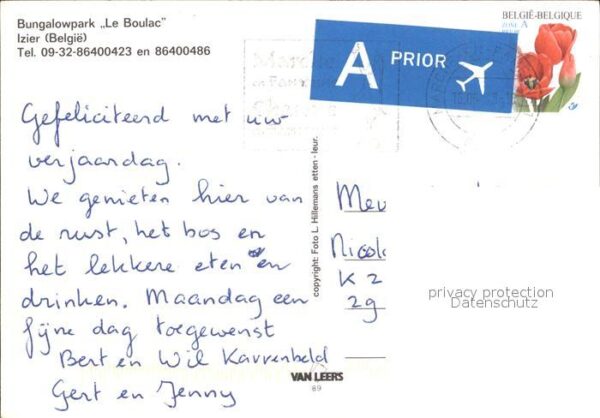 Bungalowpark „Le Boulac"
Izier (België)
Tel. 09-32-86400423 en 86400486
Gefeliciteerd met uw
verjaardag.
We genieten hier van
de rust, het bos en
het lekkere eten en
drinken. Maandag een
fijne dag toegewenst
Bert en Wil Karrenbeld
Gert en Jenny
copyright: Foto L. Hillemans etten-leur.
VAN LEERS
89
A PRIOR
BELGIË-BELGIQUE
ZONE A
Mev
Nicol
K 2
2g
privacy protection
Datenschutz